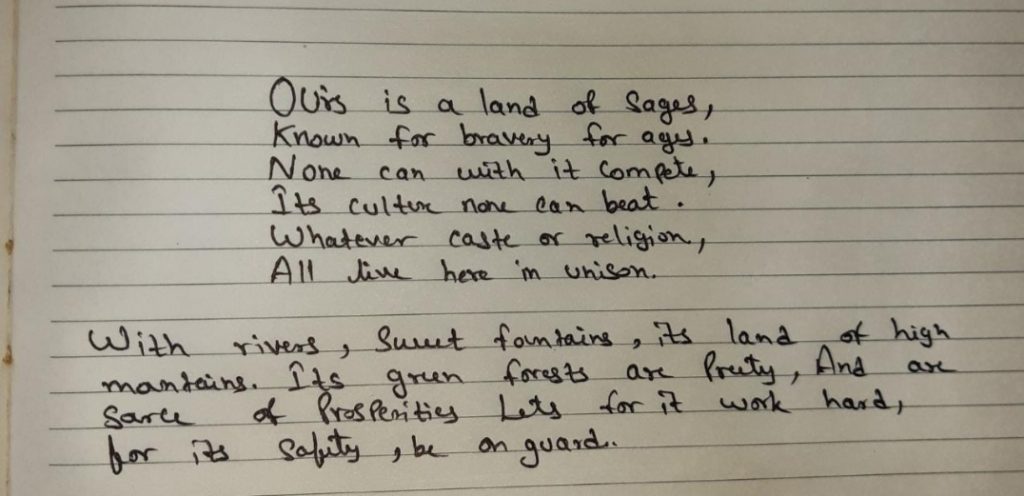 Ours is a land of Sages,
Known for bravery for ages.
None can with it Compete,
Its culture none can beat.
Whatever caste or religion,
All live here in unison.
With rivers, Sweet fountains, its land of high
mantains. Its green forests are Pretty, And are
Sarce of Prosperities Lets for it work hard,
for its Safety, be on guard.